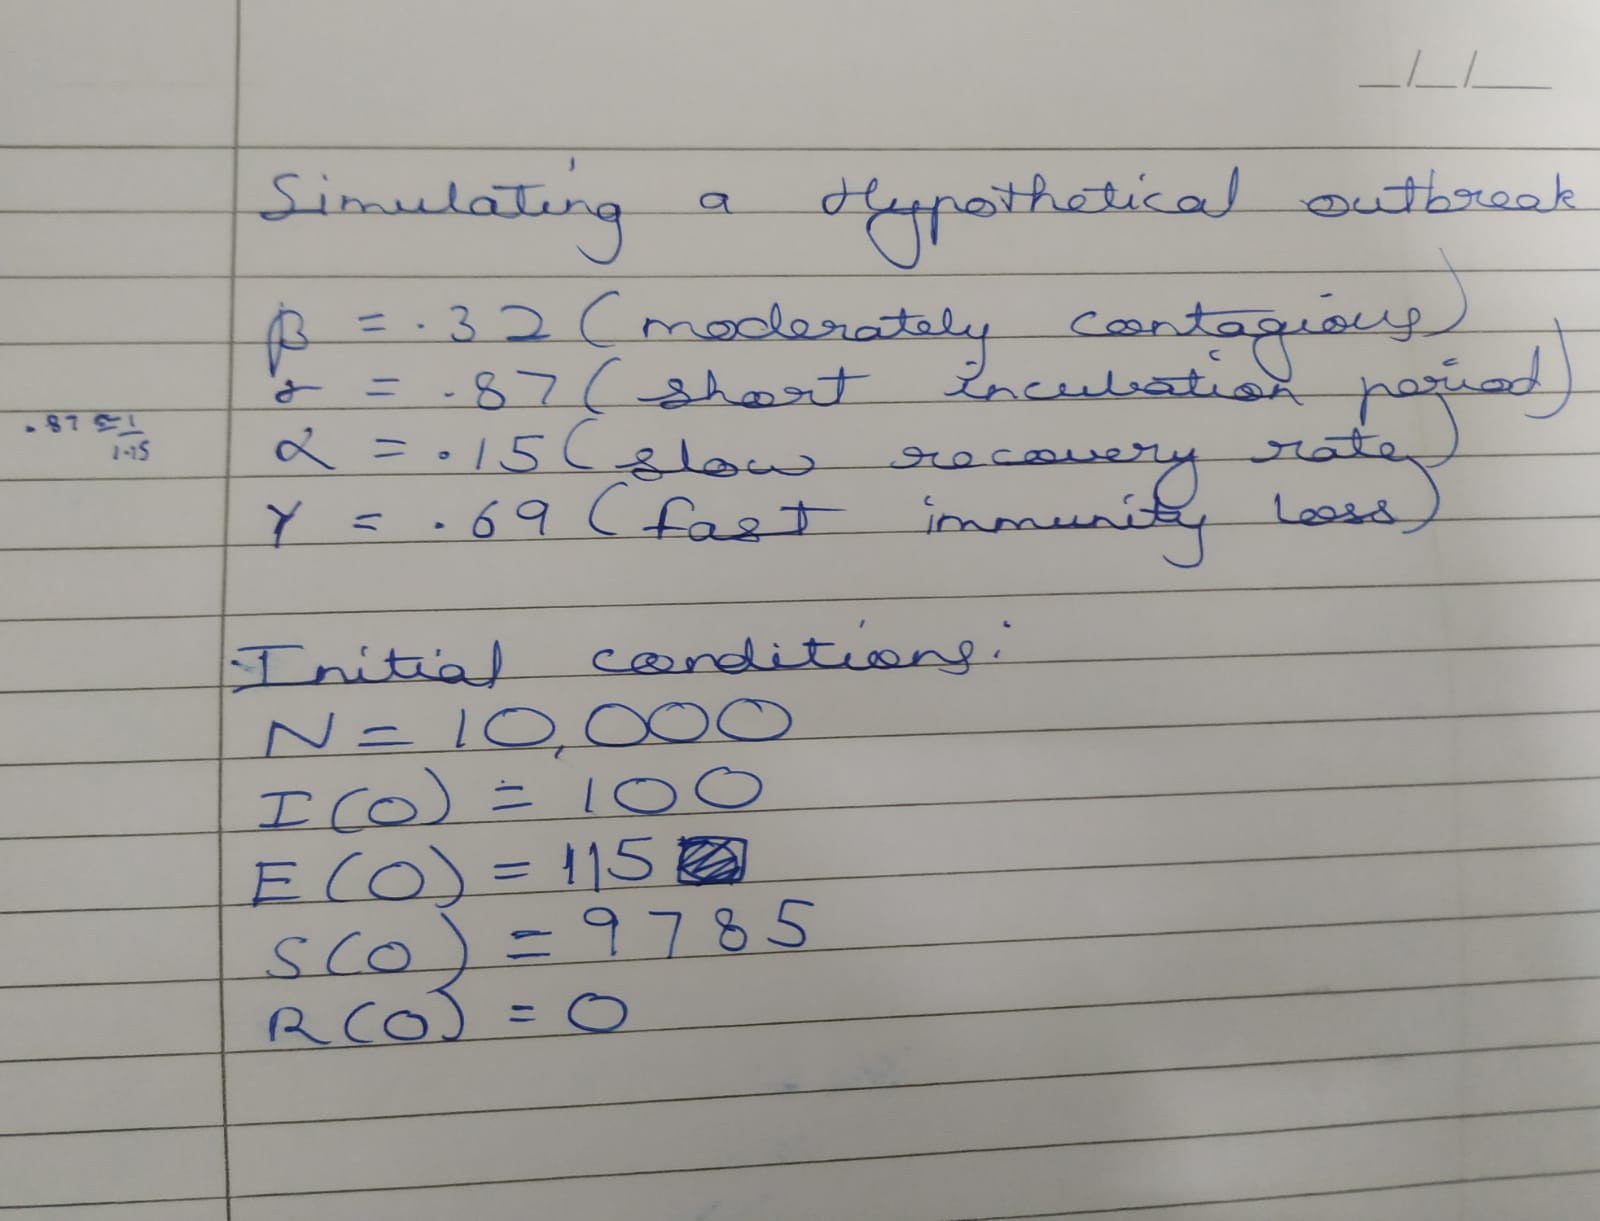 __/__/____
Simulating a Hypothetical outbreak
β = .32 (moderately contagious)
σ = .87 (short incubation period)
.87 ≅ 1/1.15
α = .15 (slow recovery rate)
γ = .69 (fast immunity loss)
Initial conditions:
N = 10,000
I(0) = 100
E(0) = 115
S(0) = 9785
R(0) = 0